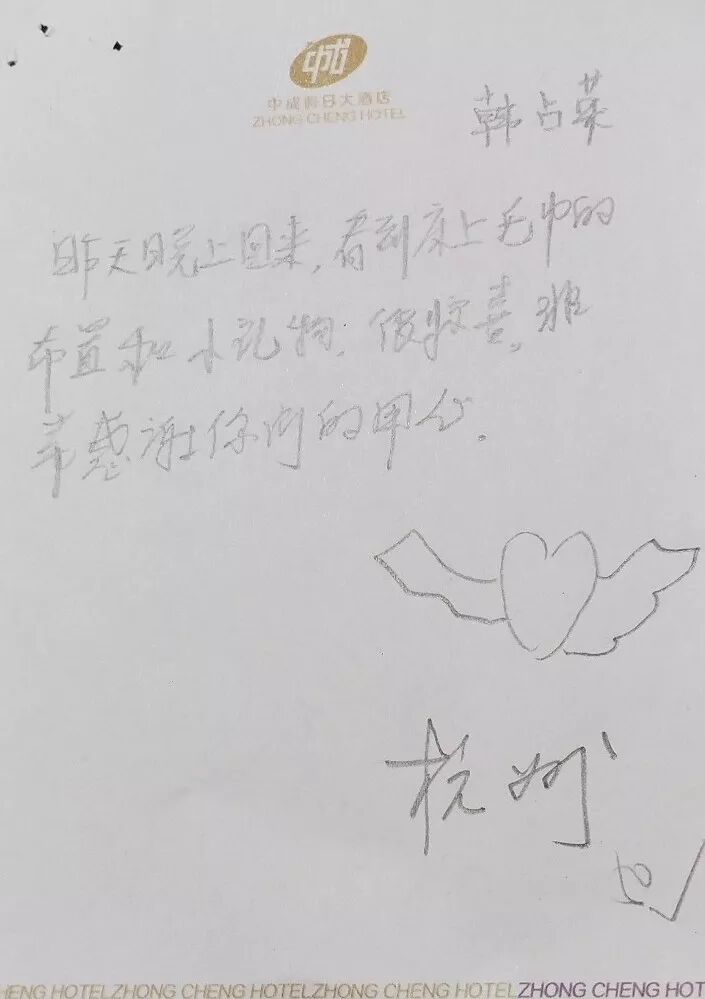 中成假日大酒店
ZHONG CHENG HOTEL
韩占荣
昨天晚上回来,看到床上毛巾的
布置和小礼物,很惊喜,非
常感谢你们的用心.
杭州
HENG HOTELZHONG CHENG HOTELZHONG CHENG HOTELZHONG CHENG HOT